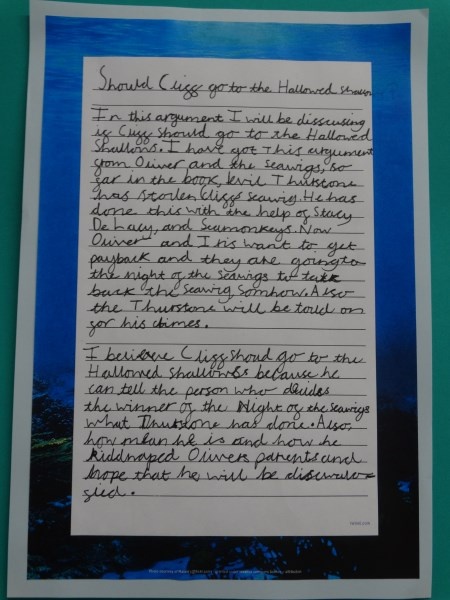 Should Cligg go to the Hallowed shallow
In this argument I will be disscusing
if Cligg should go to the Hallowed
Shallows. I have got this argument
from Oliver and the Seawigs, so
far in the book, kevil Thurlstone
has stolen Cliggs seawig. He has
done this with the help of Stacy
De Lacy, and Seamonkeys. Now
Oliver and Iris want to get
payback and they are going to
the night of the seawigs to take
back the seawig Somhow. Also
the Thurlstone will be tould on
for his crimes.
I believe Cligg shoud go to the
Hallowed shallows because he
can tell the person who decides
the winner of the Night of the seawigs
what Thurlstone has done. Also,
how mean he is and how he
kiddnaped Olivers parents and
hope that he will be